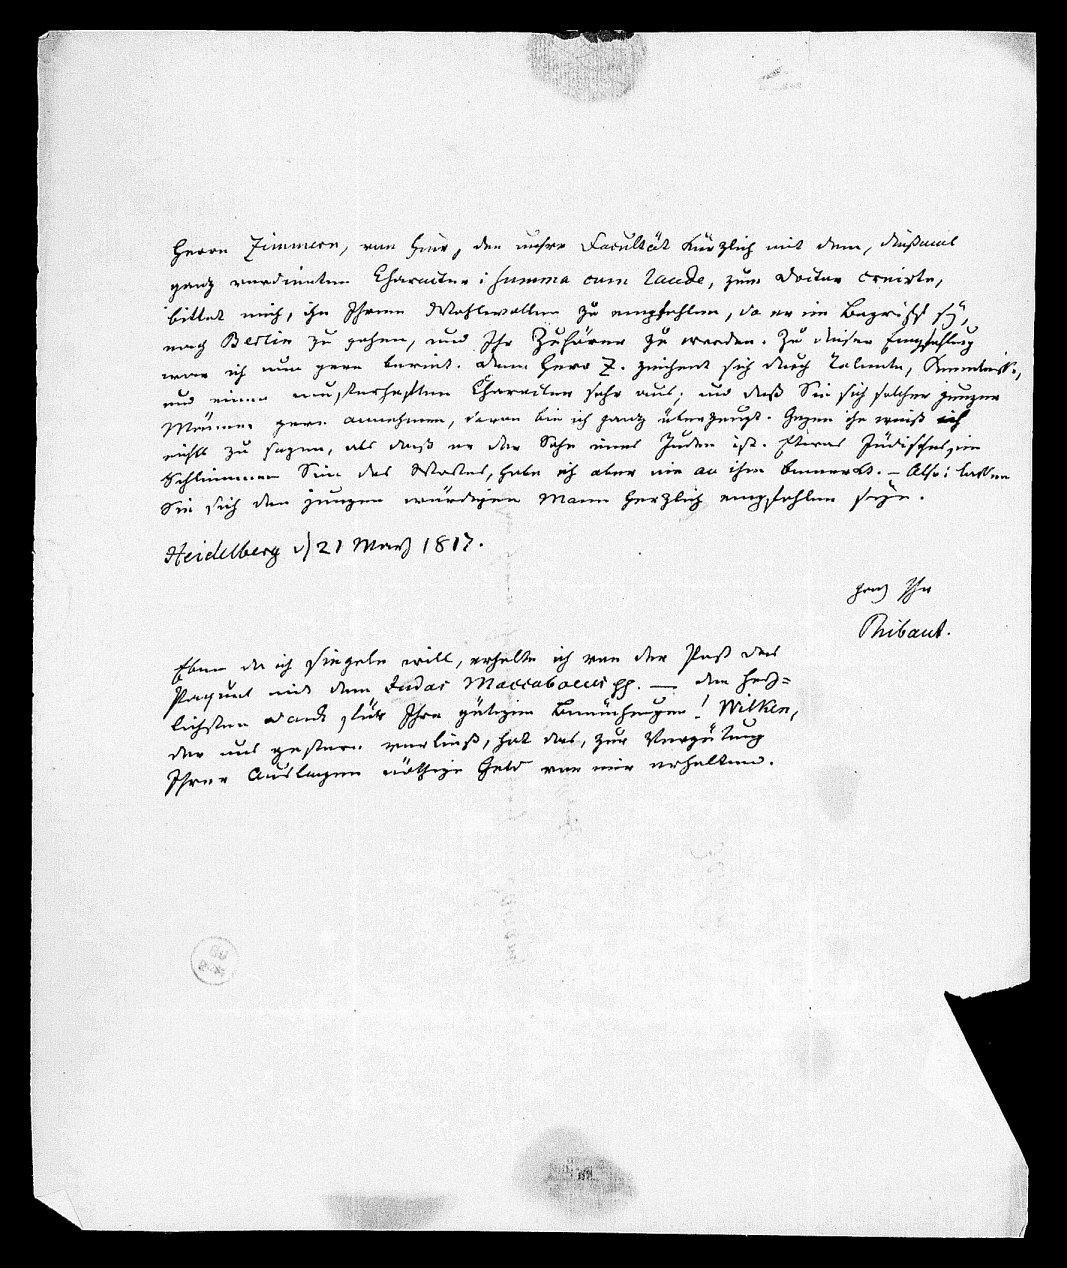 Herrn Zimmern, von hier, den unsre Facultät kürzlich mit dem, dießmal
ganz verdienten Character: summa cum laude, zum Doctor creirte,
bittet mich, ihn Ihrem Wohlwollen zu empfehlen, da er im Begriff ist,
nach Berlin zu gehen, und Ihr Zuhörer zu werden. Zu dieser Empfehlung
war ich nun gern bereit. Denn Herr Z. zeichnet sich durch Talente, Kenntnisse,
und einen musterhaften Character sehr aus; und daß Sie sich solcher junger
Männer gern annehmen, davon bin ich ganz überzeugt. Gegen ihn weiß ich
nichts zu sagen, als daß er der Sohn eines Juden ist. Etwas Jüdisches, im
schlimmen Sinn des Wortes, habe ich aber nie an ihm bemerkt. – Also: lassen
Sie sich den jungen würdigen Mann herzlich empfohlen seyn.
Heidelberg d 21 März 1817.
ganz Ihr
Thibaut.
Eben da ich siegeln will, erhalte ich von der Post das
Paquet mit dem Judas Maccabaeus pp. — den herz=
lichsten Dank für Ihre gütigen Bemühungen! Wilken,
der uns gestern verließ, hat das, zur Vergütung
Ihrer Auslagen nöthige Geld von mir erhalten.